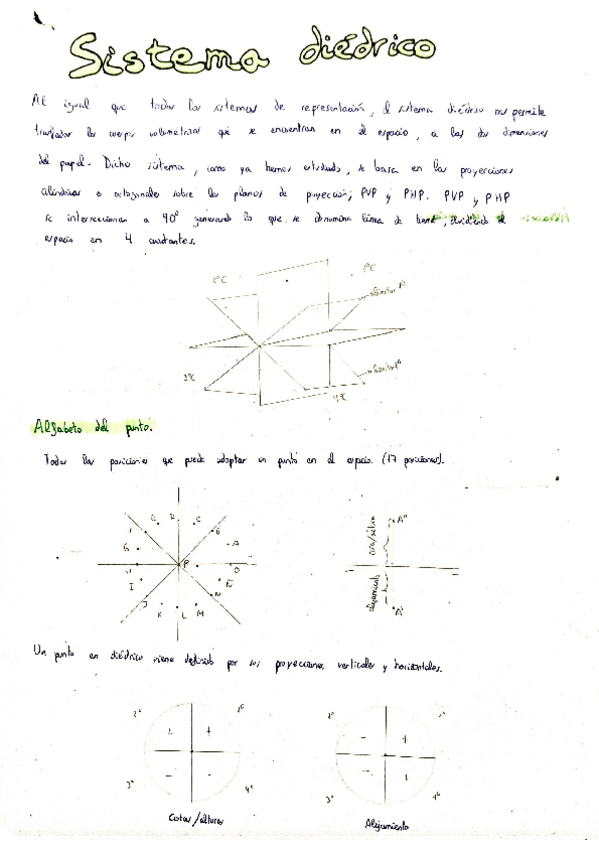 Sistema diédrico
Al igual que todos los sistemas de representación, el sistema diédrico nos permite
trasladar los cuerpos volumétricos que se encuentran en el espacio, a las dos dimensiones
del papel. Dicho sistema, como ya hemos estudiado, se basa en las proyecciones
cilíndricas o octogonales sobre los planos de proyección; PVP y PHP. PVP y PHP
se interseccionan a 90º generando lo que se denomina línea de tierra, dividiendo el
espacio en 4 cuadrantes.
2ºC
4ºC
Alfabeto del punto.
Todas las posiciones que puede adoptar un punto en el espacio. (17 posiciones).
D
C
B
A
G
P
O
I
Ñ
J
N
K
L
M
A''
alejamiento
A'
Un punto en diédrico viene definido por sus proyecciones verticales y horizontales.
2º
1º
+
+
-
-
3º
4º
Cotas/alturas
2º
1º
-
+
-
+
3º
4º
Alejamiento